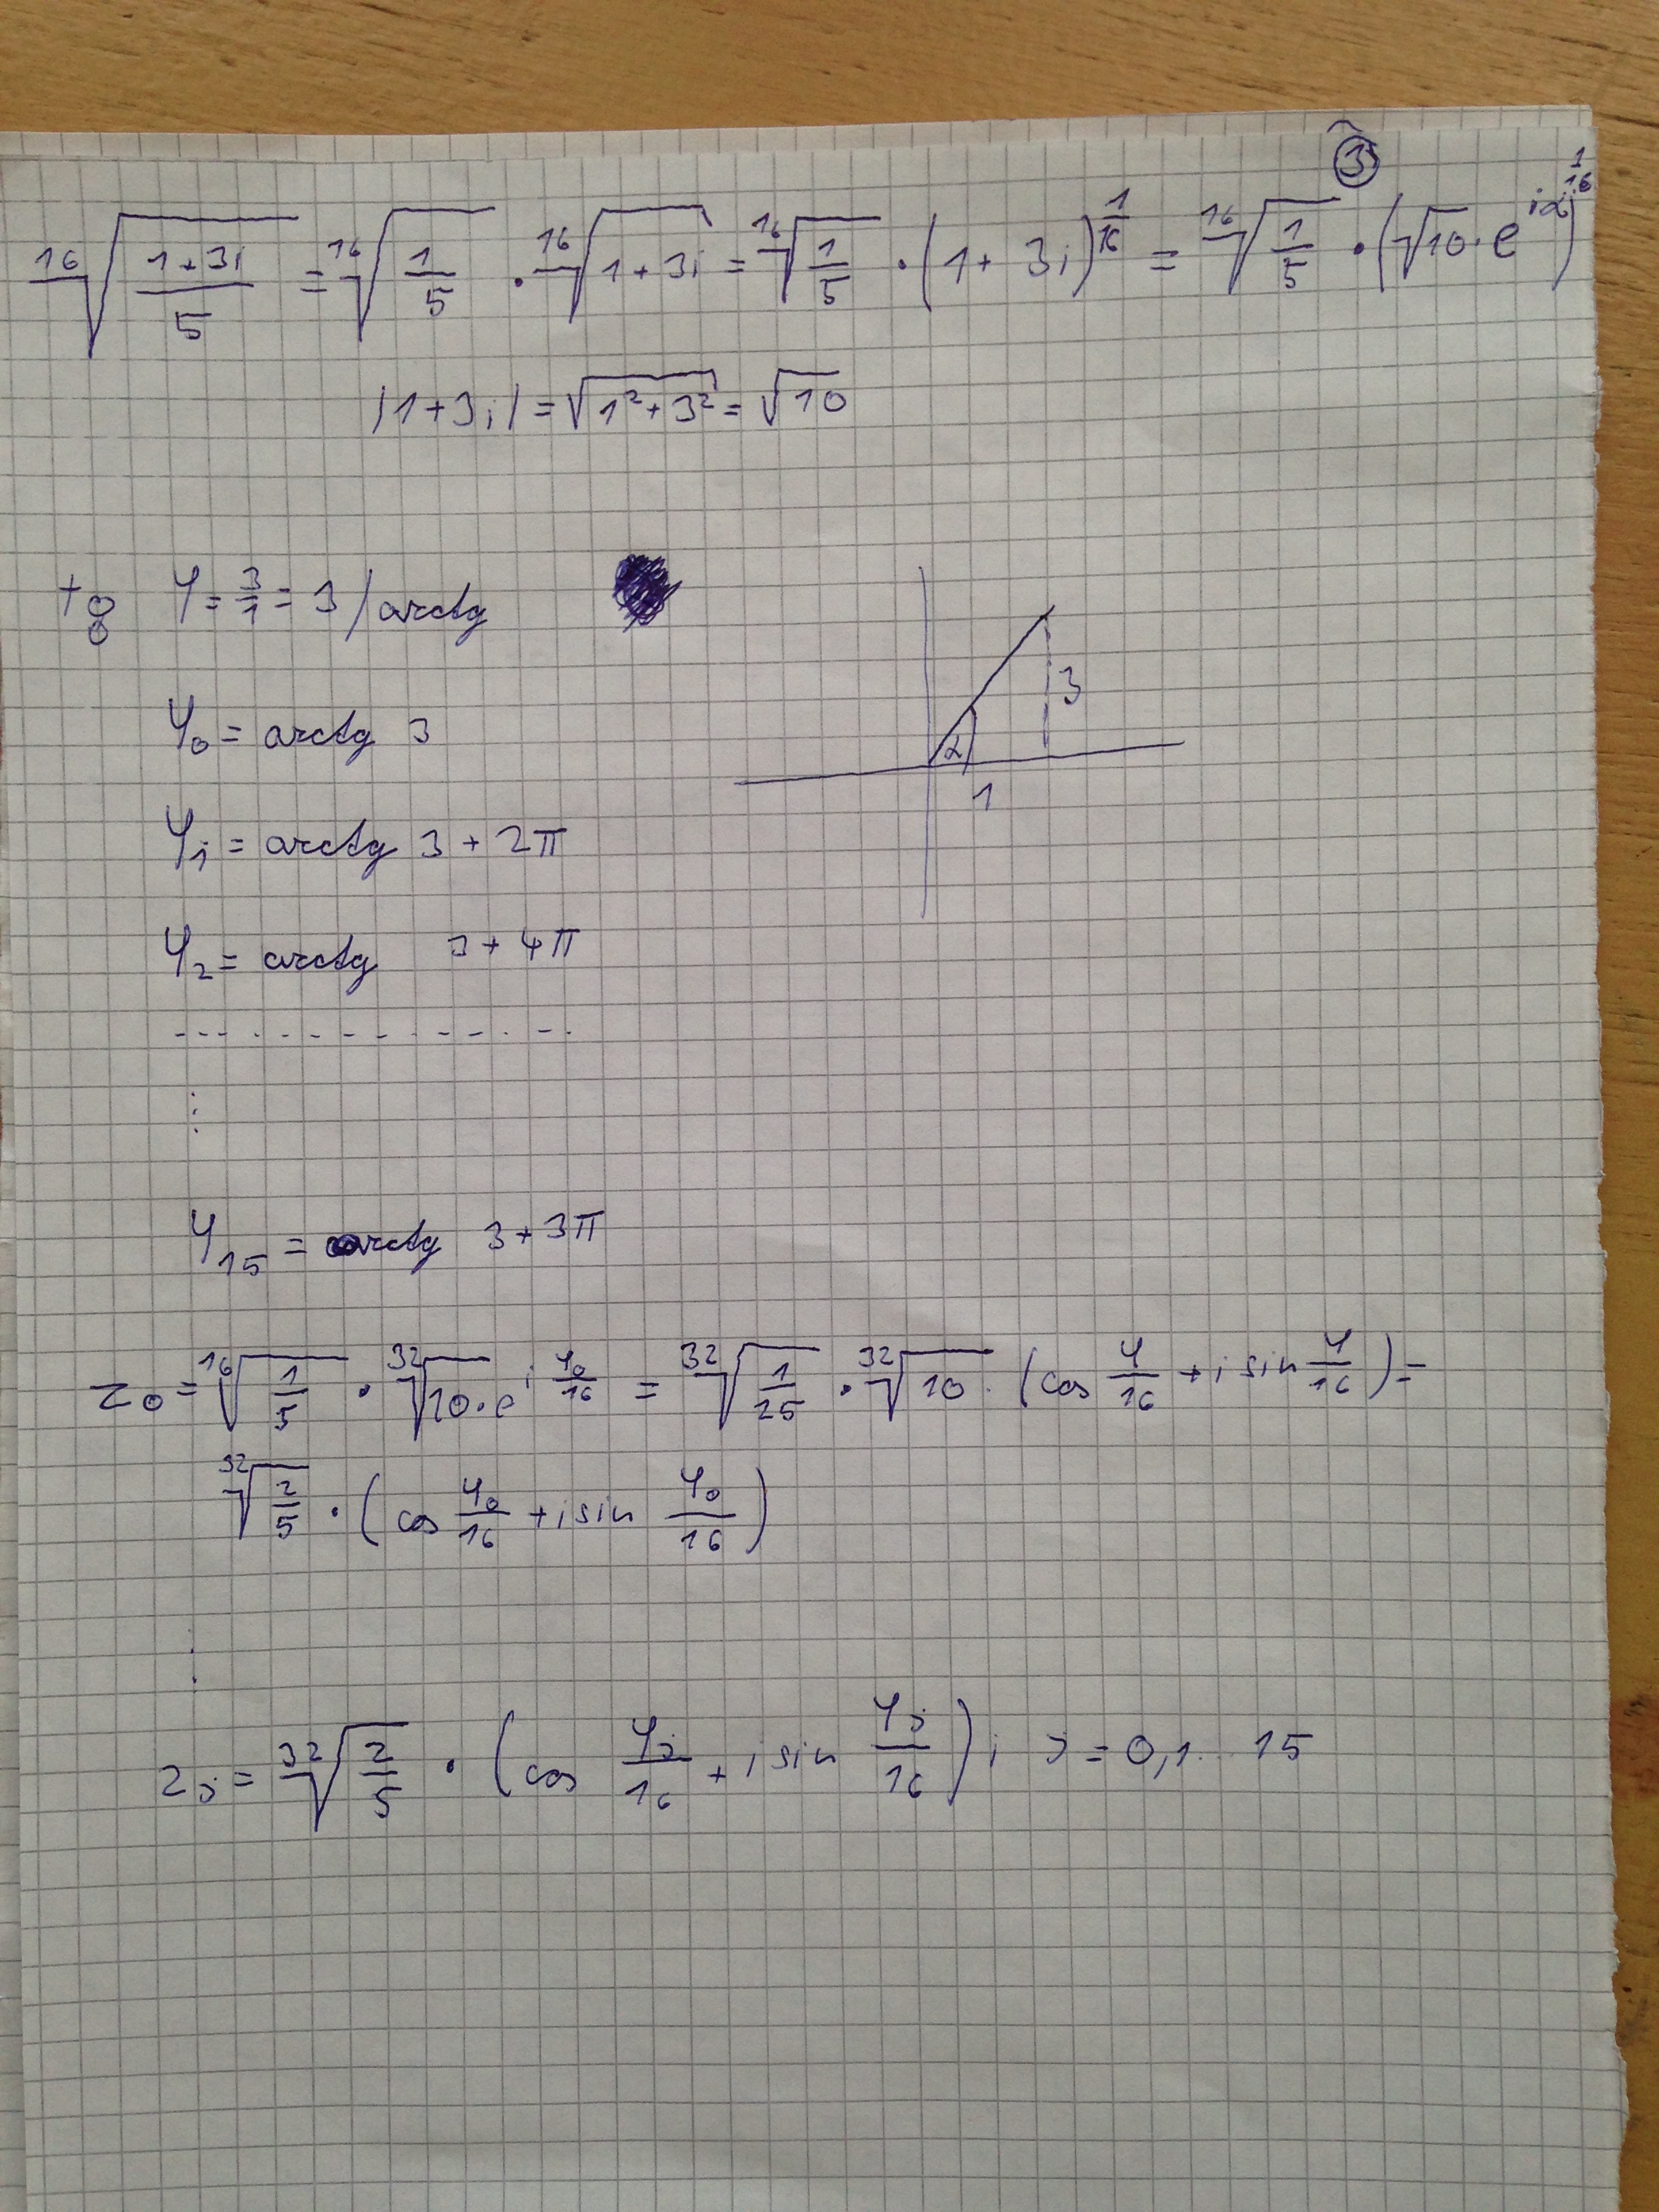 ③
16√((1+3i)/5) = 16√(1/5) · 16√(1+3i) = 16√(1/5) · (1+3i)^(1/16) = 16√(1/5) · (√10 · e^(iα))^(1/16)
|1+3i| = √(1²+3²) = √10
tg φ = 3/1 = 3 / arctg
φ₀ = arctg 3
3
α
1
φ₁ = arctg 3 + 2π
φ₂ = arctg 3 + 4π
φ₁₅ = arctg 3 + 3π
z₀ = 16√(1/5) · 32√10 · e^(i φ₀/16) = 32√(1/25) · 32√10 · (cos φ/16 + i sin φ/16) =
32√(2/5) · (cos φ₀/16 + i sin φ₀/16)
zⱼ = 32√(2/5) · (cos φⱼ/16 + i sin φⱼ/16) ; j = 0,1.. 15